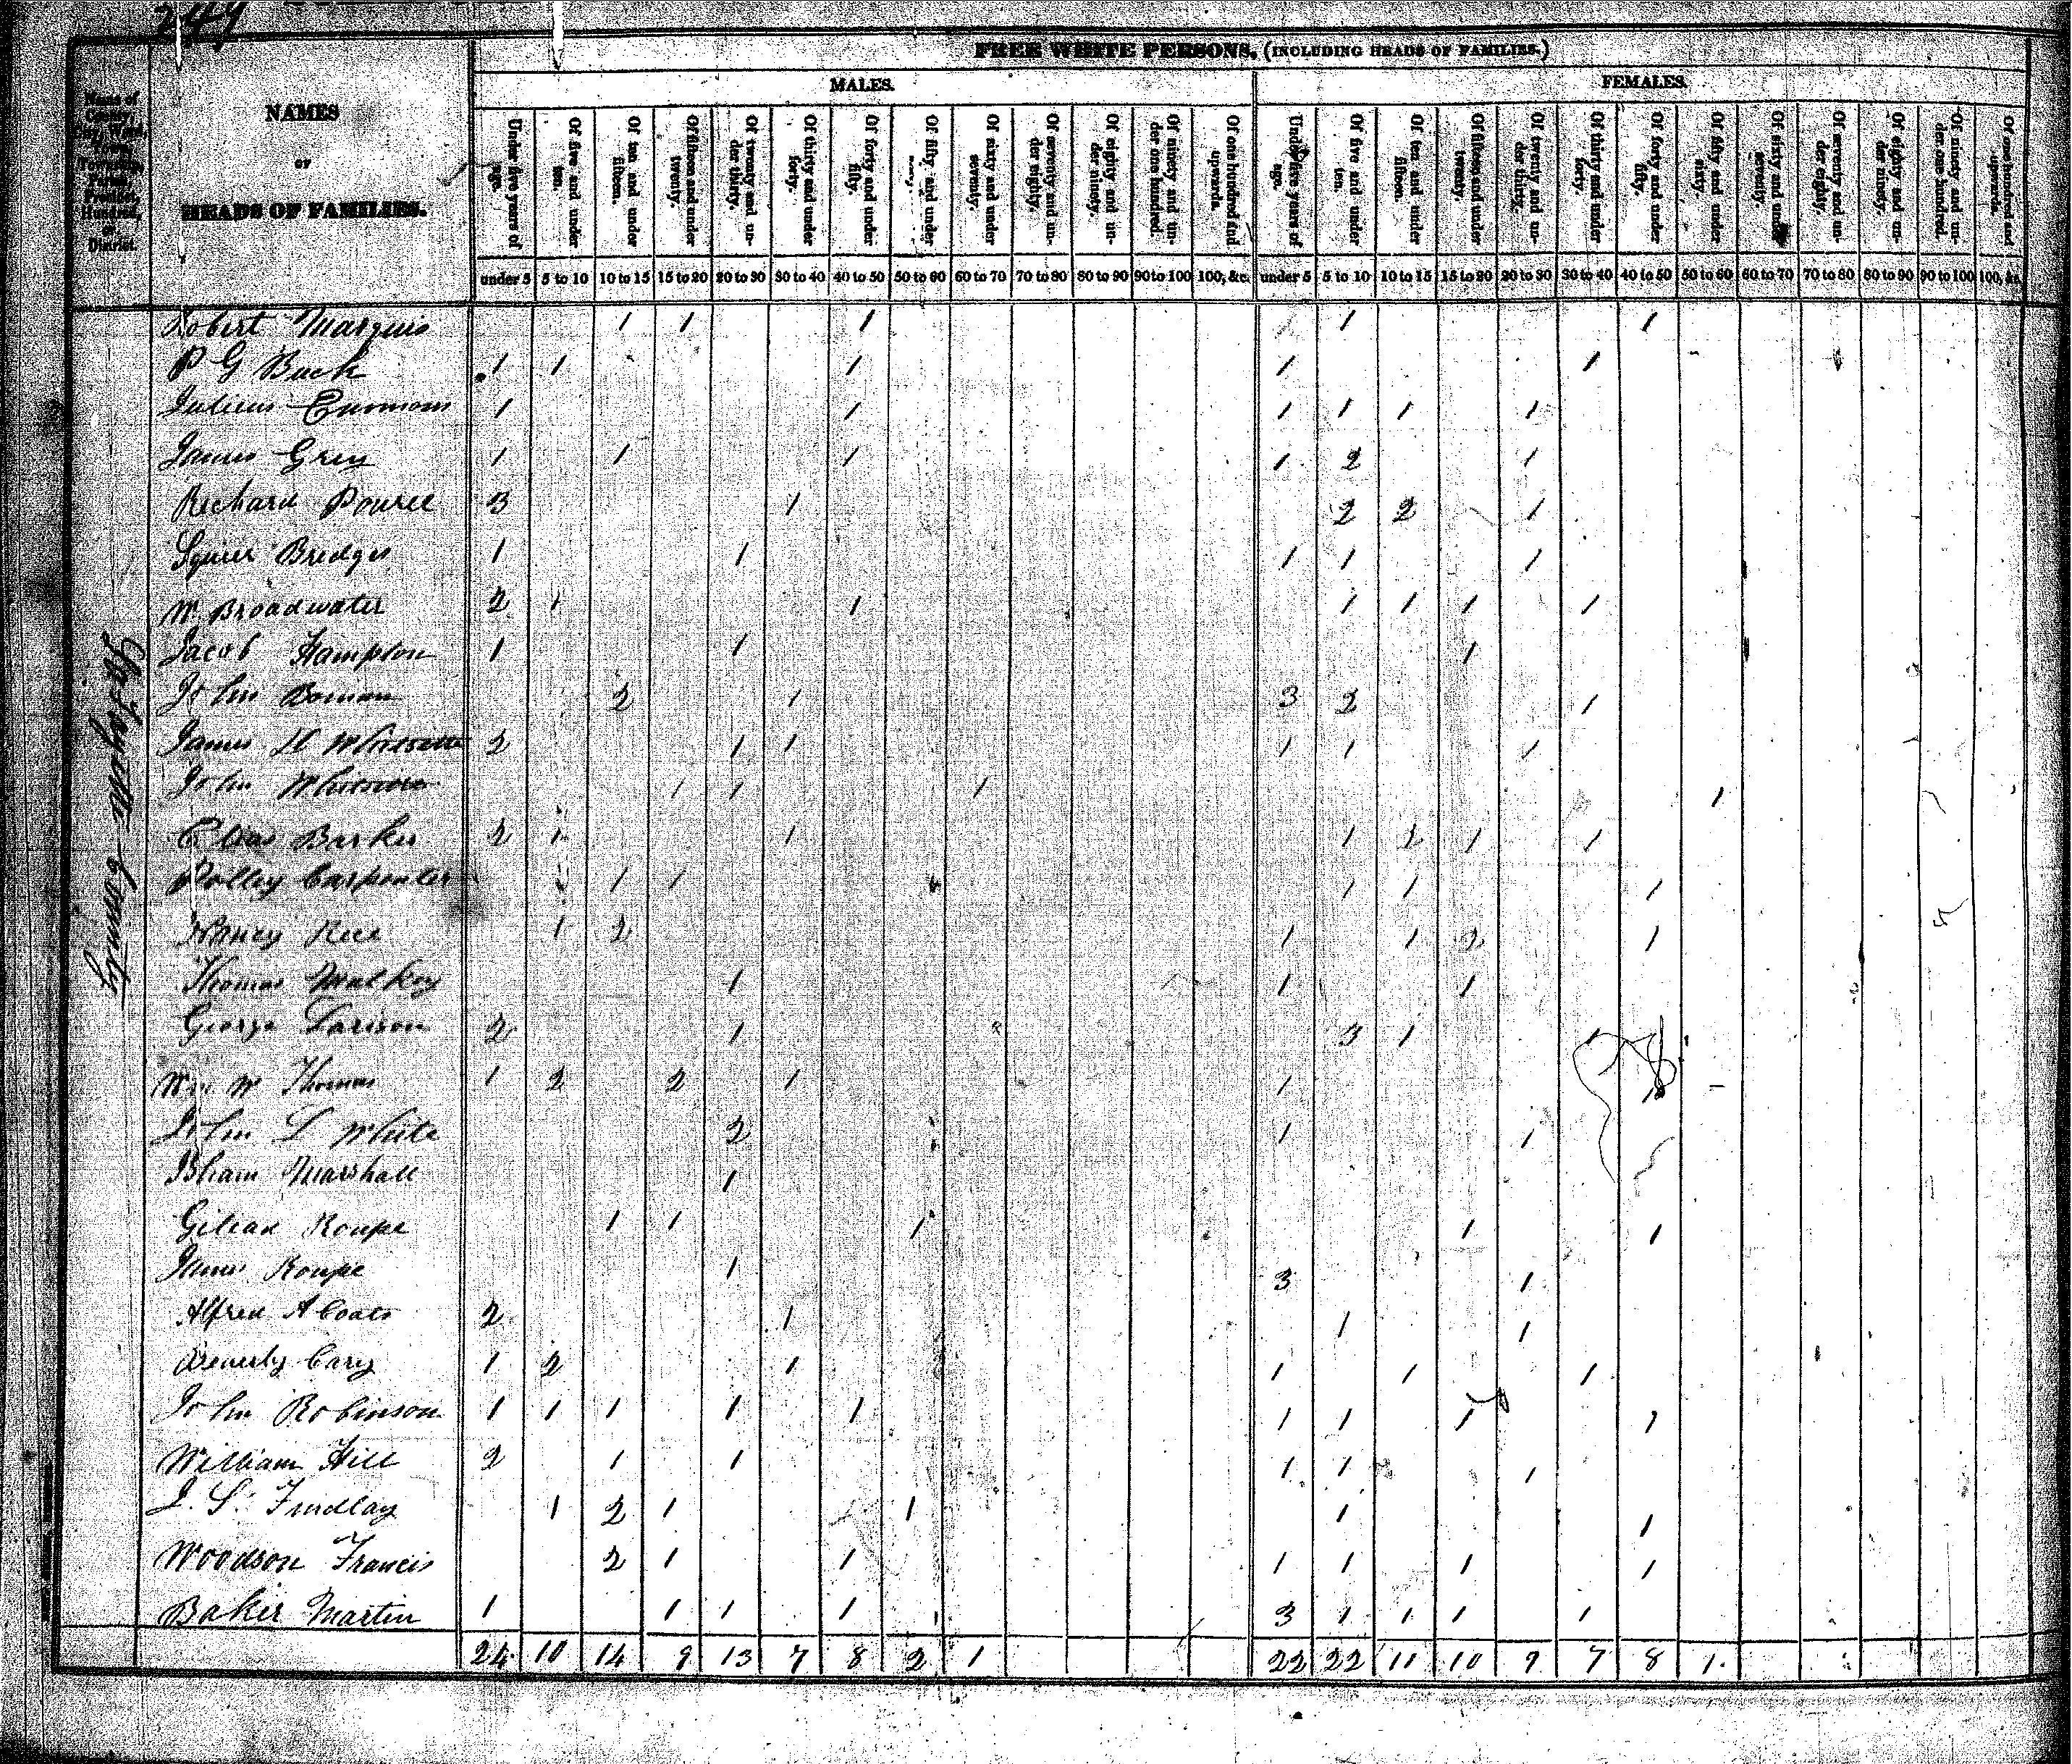 249
FREE WHITE PERSONS. (INCLUDING HEADS OF FAMILIES.)
MALES. FEMALES.
Name of County, City, Ward, Town, Township, Parish, Precinct, Hundred, or District.
NAMES
OF
HEADS OF FAMILIES.
Under five years of age. Of five and under ten. Of ten and under fifteen. Of fifteen and under twenty. Of twenty and under thirty. Of thirty and under forty. Of forty and under fifty. Of fifty and under Of sixty and under seventy. Of seventy and under eighty. Of eighty and under ninety. Of ninety and under one hundred. Of one hundred and upwards. Under five years of age. Of five and under ten. Of ten and under fifteen. Of fifteen and under twenty. Of twenty and under thirty. Of thirty and under forty. Of forty and under fifty. Of fifty and under sixty. Of sixty and under seventy. Of seventy and under eighty. Of eighty and under ninety. Of ninety and under one hundred. Of one hundred and upwards.
under 5 5 to 10 10 to 15 15 to 20 20 to 30 30 to 40 40 to 50 50 to 60 60 to 70 70 to 80 80 to 90 90 to 100 100, &c. under 5 5 to 10 10 to 15 15 to 20 20 to 30 30 to 40 40 to 50 50 to 60 60 to 70 70 to 80 80 to 90 90 to 100 100, &c.
Lafayette County
Robert Marquis 1 1 1 1 1
P G Buck 1 1 1 1 1
Julius Emmons 1 1 1 1 1 1
James Grey 1 1 1 1 2 1
Richard 3 1 2 2 1
Squire Bridges 1 1 1 1 1
W. Broadwater 2 1 1 1 1 1 1
Jacob Hampton 1 1 1
John 2 1 3 2 1
James H Whitsett 2 1 1 1 1 1
John 1 1 1 1
Elias Barker 2 1 1 1 2 1 1
Polley Carpenter 1 1 1 1 1
Nancy Rice 1 2 1 1 2 1
Thomas Mulkey 1 1 1
George Larison 2 1 3 1 1
Wm W Thomas 1 2 2 1 1
John L White 2 1 1
Isham Marshall 1
Gilead Roupe 1 1 1 1 1
James Roupe 1 3 1
Alfred A Coats 2 1 1 1
Beverly Cary 1 2 1 1 1 1
John Robinson 1 1 1 1 1 1 1 1 1
William Hill 2 1 1 1 1 1
J. S. Findlay 1 2 1 1 1 1
Woodson Francis 2 1 1 1 1 1 1
Baker Martin 1 1 1 1 3 1 1 1 1
24 10 14 9 13 7 8 2 1 22 22 11 10 9 7 8 1